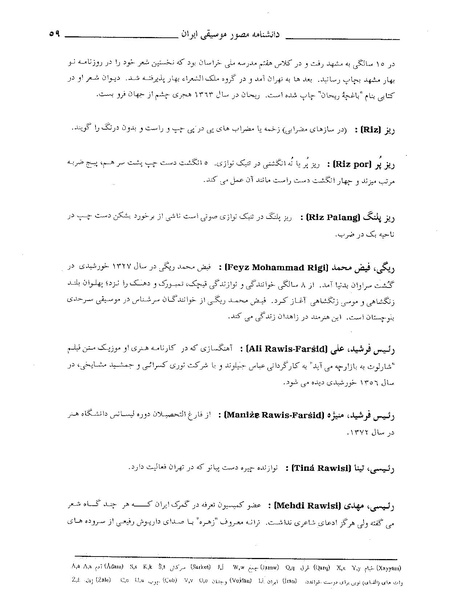 دانشنامه مصور موسیقی ایران
۵۹
در ۱۵ سالگی به مشهد رفت و در کلاس هفتم مدرسه ملی خراسان بود که نخستین شعر خود را در روزنامه نو
بهار مشهد بچاپ رسانید. بعد ها به تهران آمد و در گروه ملک الشعراء بهار پذیرفته شد. دیوان شعر او در
کتابی بنام "باغچهٔ ریحان" چاپ شده است. ریحان در سال ۱۳۶۳ هجری چشم از جهان فرو بست.
ریز (Riz) : (در سازهای مضرابی) زخمه یا مضراب های پی در پی چپ و راست و بدون درنگ را گویند.
ریز پُر (Riz por) : ریز پُر یا نُه انگشتی در تنبک نوازی. ۵ انگشت دست چپ پشت سر هم، پنج ضربه
مرتب میزند و چهار انگشت دست راست مانند آن عمل می کند.
ریز پلنگ (Riz Palang) : ریز پلنگ در تنبک نوازی صوتی است ناشی از برخورد بشکن دست چپ در
ناحیه بک در ضرب.
ریگی، فیض محمد (Feyz Mohammad Rigi) : فیض محمد ریگی در سال ۱۳۲۷ خورشیدی در
گشت سراوان بدنیا آمد. از ۸ سالگی خوانندگی و نوازندگی قیچک، تمبورک و دهلک را نزد؛ پهلوان بلند
زنگشاهی و موسی زنگشاهی آغاز کرد. فیض محمد ریگی از خوانندگان سرشناس در موسیقی سرحدی
بلوچستان است. این هنرمند در زاهدان زندگی می کند.
رئیس فرشید، علی (Ali Rawis-Farŝid) : آهنگسازی که در کارنامه هنری او موزیک متن فیلم
"شارلوت به بازارچه می آید" به کارگردانی عباس جلیلوند و با شرکت نوری کسرائی و جمشید مشایخی، در
سال ۱۳۵۶ خورشیدی دیده می شود.
رئیس فرشید، منیژه (Maniẑe Rawis-Farŝid) : از فارغ التحصیلان دوره لیسانس دانشگاه هنر
در سال ۱۳۷۲.
رئیسی، تینا (Tiná Rawisi) : نوازنده چیره دست پیانو که در تهران فعالیت دارد.
رئیسی، مهدی (Mehdi Rawisi) : عضو کمیسیون تعرفه در گمرک ایران که هر چند گاه شعر
می گفته ولی هرگز ادعای شاعری نداشت. ترانه معروف "زهره" با صدای داریوش رفیعی از سروده های